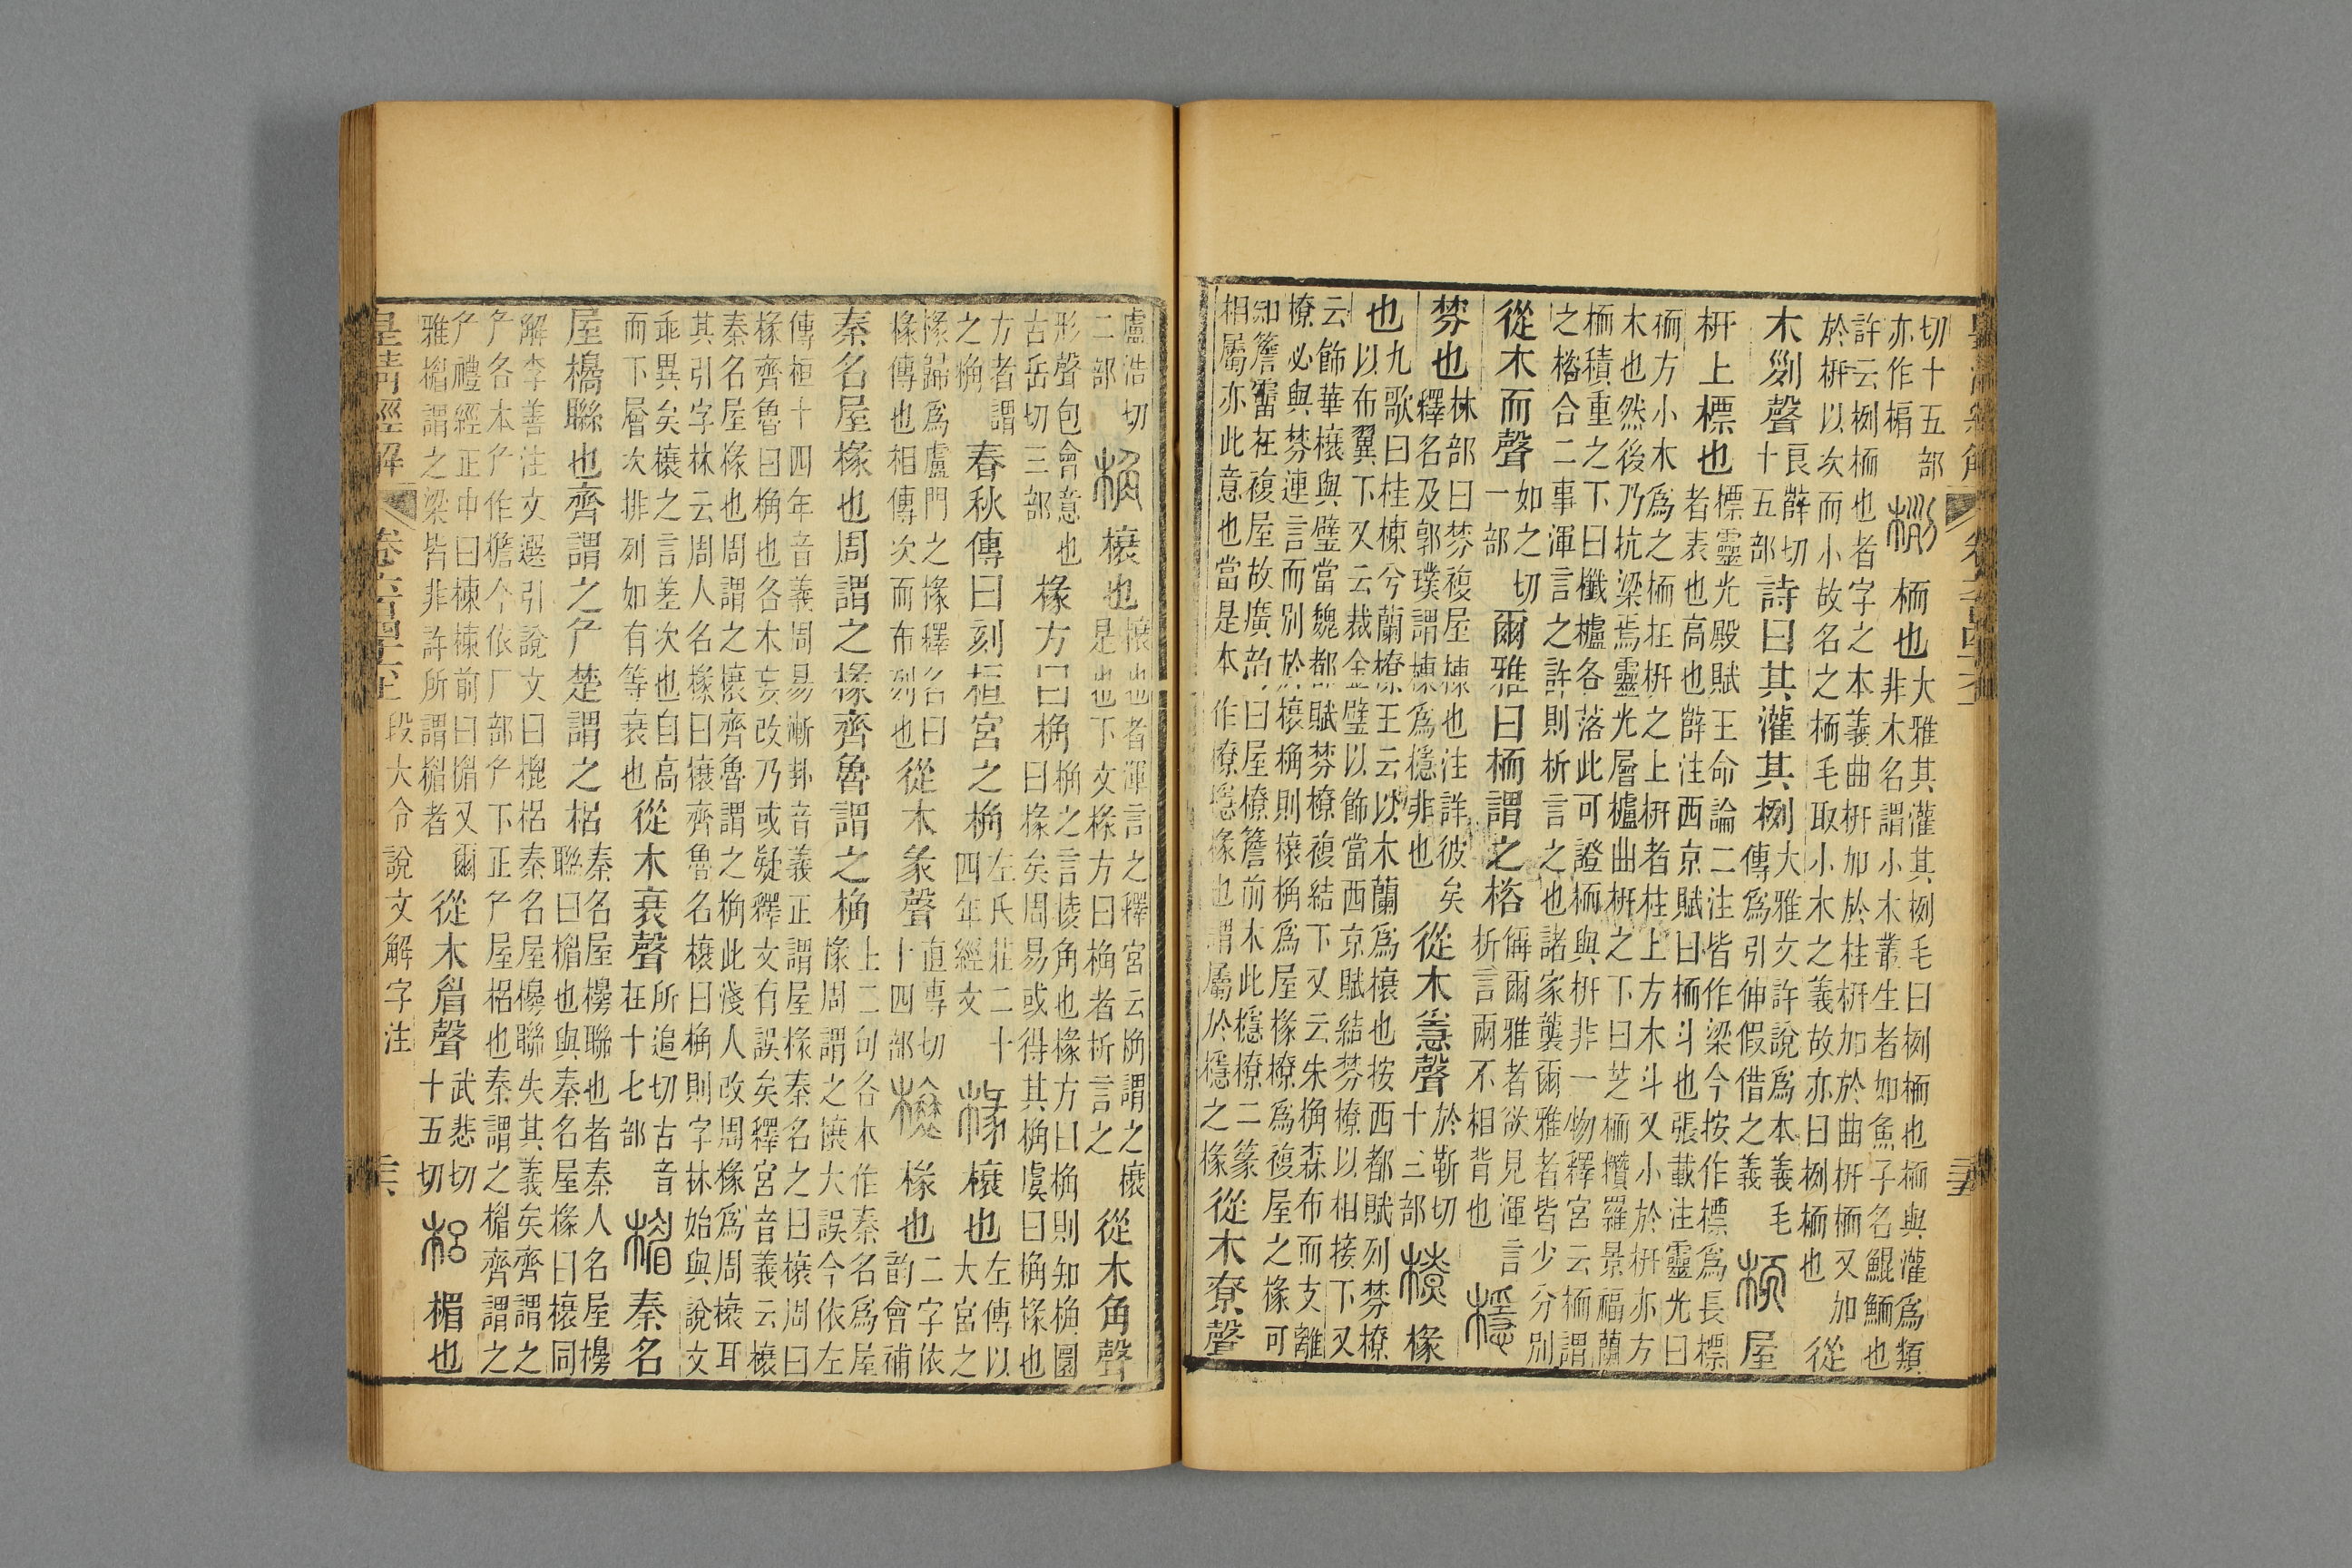 切十五部
亦作楄
栵
栭也
大雅其灌其栵毛曰栵栭也栭與灌爲類
非木名謂小木叢生者如魚子名鯤鮞也
許云栵栭也者字之本義曲枅加於柱枅加於曲枅栭又加
於枅以次而小故名之栭毛取小木之義故亦曰栵栭也
從
木㓝聲
良辥切
十五部
詩曰其灌其栵
大雅文許說爲本義毛
傳爲引伸假借之義
栭
屋
枅上標也
標靈光殿賦王命論二注皆作梁今按作標爲長標
者表也高也辥注西京賦曰栭斗也張載注靈光曰
栭方小木爲之栭在枅之上枅者柱上方木斗又小於枅亦方
木也然後乃抗梁焉靈光層櫨曲枅之下曰芝栭欑羅景福蘭
栭積重之下曰櫼櫨各落此可證栭與枅非一物釋宮云栭謂
之楶合二事渾言之許則析言之也諸家襲爾雅者皆少分別
從木而聲
如之切
一部
爾雅曰栭謂之楶
解爾雅者欲見渾言
析言爾不相背也
檼
棼也
林部曰棼複屋棟也注詳彼矣
釋名及郭璞謂棟爲檼非也
從木㥯聲
於靳切
十三部
橑
椽
也
九歌曰桂棟兮蘭橑王云以木蘭爲榱也按西都賦列棼橑
以布翼下又云裁金璧以飾當西京賦結棼橑以相接下又
云飾華榱與璧當魏都賦棼橑複結下又云朱桷森布而支離
橑必與棼連言而別於榱桷則榱桷爲屋椽橑爲複屋之椽可
知簷霤在複屋故廣韵曰屋橑簷前木此檼橑二篆
相屬亦此意也當是本作橑檼椽也謂屬於檼之椽
從木尞聲
三五
盧浩切
二部
桷
榱也
榱也者渾言之釋宮云桷謂之榱
是也下文椽方曰桷者析言之
從木角聲
形聲包會意也
古岳切三部
椽方曰桷
桷之言棱角也椽方曰桷則知桷圜
曰椽矣周易或得其桷虞曰桷椽也
方者謂
之桷
春秋傳曰刻桓宮之桷
左氏莊二十
四年經文
椽
榱也
左傳以
大宮之
椽歸爲盧門之椽釋名曰
椽傳也相傳次而布列也
從木彖聲
直專切
十四部
榱
椽也
二字依
韵會補
秦名屋椽也周謂之椽齊魯謂之桷
上二句各本作秦名爲屋
椽周謂之榱大誤今依左
傳桓十四年音義周易漸卦音義正謂屋椽秦名之曰榱周曰
椽齊魯曰桷也各木妄改乃或疑釋文有誤矣釋宮音義云榱
秦名屋椽也周謂之榱齊魯謂之桷此淺人改周椽爲周榱耳
其引字林云周人名椽曰榱齊魯名榱曰桷則字林始與說文
乖異矣榱之言差次也自高
而下層次排列如有等衰也
從木衰聲
所追切古音
在十七部
楣
秦名
屋櫋聯也齊謂之厃楚謂之梠
秦名屋櫋聯也者秦人名屋櫋
聯曰楣也與秦名屋椽曰榱同
解李善注文選引說文曰梍梠秦名屋櫋聯失其義矣齊謂之
厃各本厃作檐今依厂部厃下正厃屋梠也秦謂之楣齊謂之
厃禮經正中曰棟棟前曰楣又爾
雅楣謂之梁皆非許所謂楣者
從木眉聲
武悲切
十五切
梠
楣也
皇清經解
卷六百四十六上
段大令說文解字注
三六